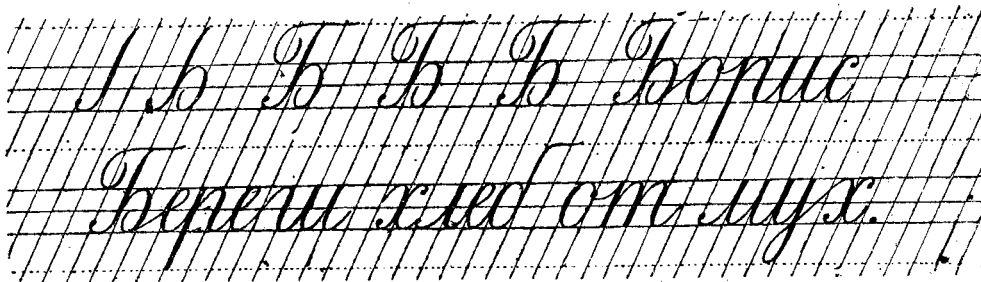 Б Б Б Борис
Береги хлеб от мух.